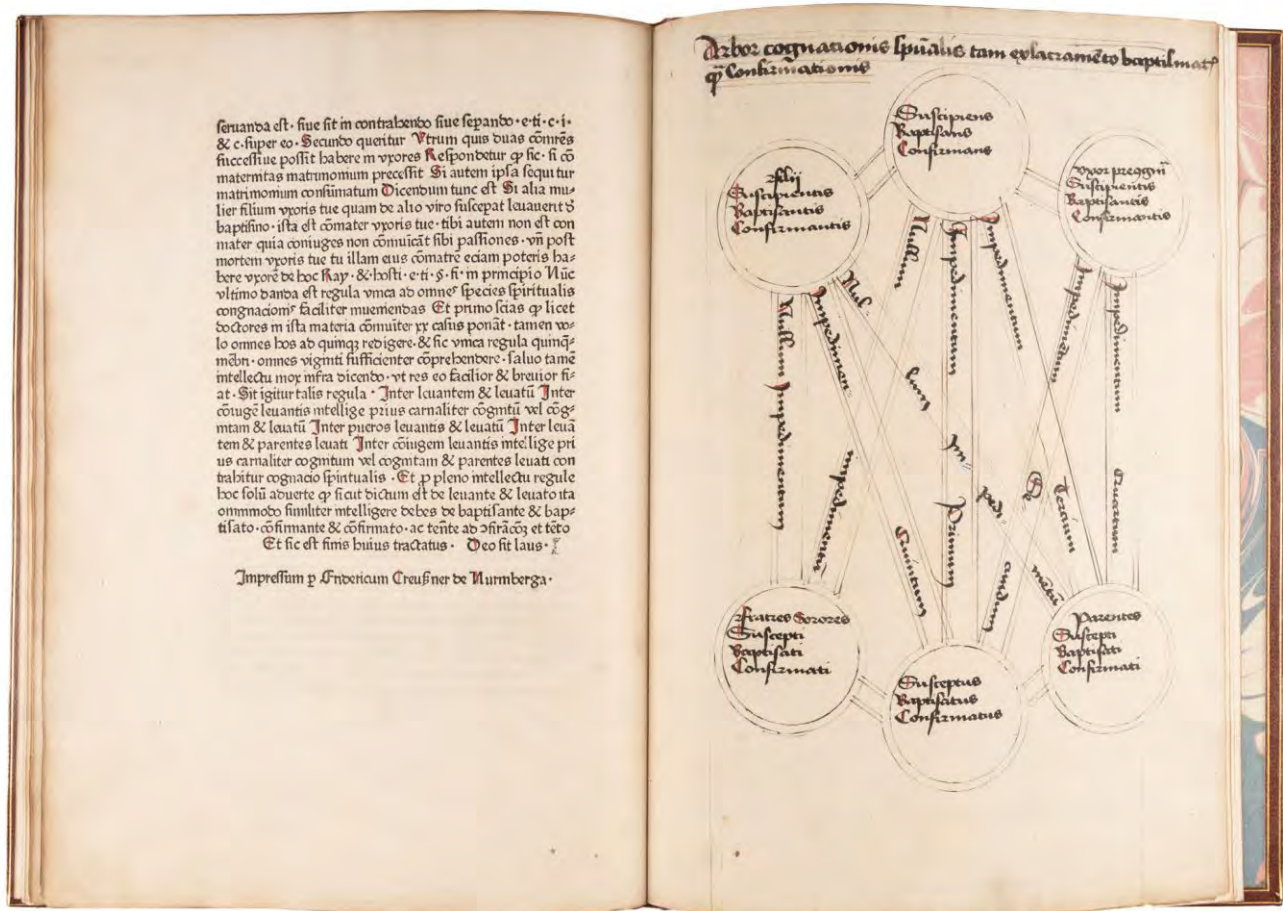 seruanda est · siue sit in contrahendo siue sepando · e · ti · c · i ·
& c · super eo · Secundo queritur Vtrum quis duas cōmr̄es
successiue possit habere in vxores Respondetur ꝙ sic · si cō
maternitas matrimonium precessit Si autem ipsa sequi tur
matrimonium consūmatum Dicendum tunc est Si alia mu⸗
lier filium vxoris tue quam de alio viro suscepat leuauerit
baptismo · ista est cōmater vxoris tue · tibi autem non est con
mater quia coniuges non cōmuīcāt sibi passiones · vn̄ post
mortem vxoris tue tu illam eius cōmatrē eciam poteris ha⸗
bere vxorē de hoc Ray · & hosti · e · ti · §· fi · in principio Nūc
vltimo danda est regula vnica ad omnes species spiritualis
congnacionis faciliter inueniendas Et primo scias ꝙ licet
doctores in ista materia cōmuiter xx casus ponāt · tamen vo⸗
lo omnes hos ad quinqȝ redigere · & sic vnica regula quinq̄⸗
mēbri · omnes viginti sufficienter cōprehendere · saluo tamē
intellectu mox infra dicendo · vt res eo facilior & breuior fi⸗
at · Sit igitur talis regula · Inter leuantem & leuatū Inter
cōiugē leuantis intellige prius carnaliter cōgnitū vel cōg⸗
nitam & leuatū Inter pueros leuantis & leuatū Inter leuā
tem & parentes leuati Inter cōiugem leuantis intellige pri
us carnaliter cognitum vel cognitam & parentes leuati con
trahitur cognacio spiritualis · Et ꝓ pleno intellectu regule
hoc solū aduerte ꝙ sicut dictum est de leuante & leuato ita
ommmodo similiter intelligere debes de baptisante & bap⸗
tisato · cōfirmante & cōfirmato · ac tenēte ad ↄfirācōȝ et tēto
Et sic est finis huius tractatus · Deo sit laus ·
Impressum ꝑ Fridericum Creußner de Nurmberga ·
Arbor cognationis spūalis tam ex sacramēto baptismatꝭ
ꝙ̄ Confirmationis
Suscipiens
Baptisans
Confirmans
Filij
Suscipientis
Baptisantis
Confirmantis
Vxor
Suscipientis
Baptisantis
Confirmantis
Nullum Impedimentum
Impedimentum Quintum
Nullum Impedimētū
Nullum Impedimentum
Impedimentum Primum
Impedimentum Tercium
Impedimentum Secundum
Impedimentum Quartum
Fratres Sorores
Suscepti
Baptisati
Confirmati
Susceptus
Baptisatus
Confirmatus
Parentes
Suscepti
Baptisati
Confirmati